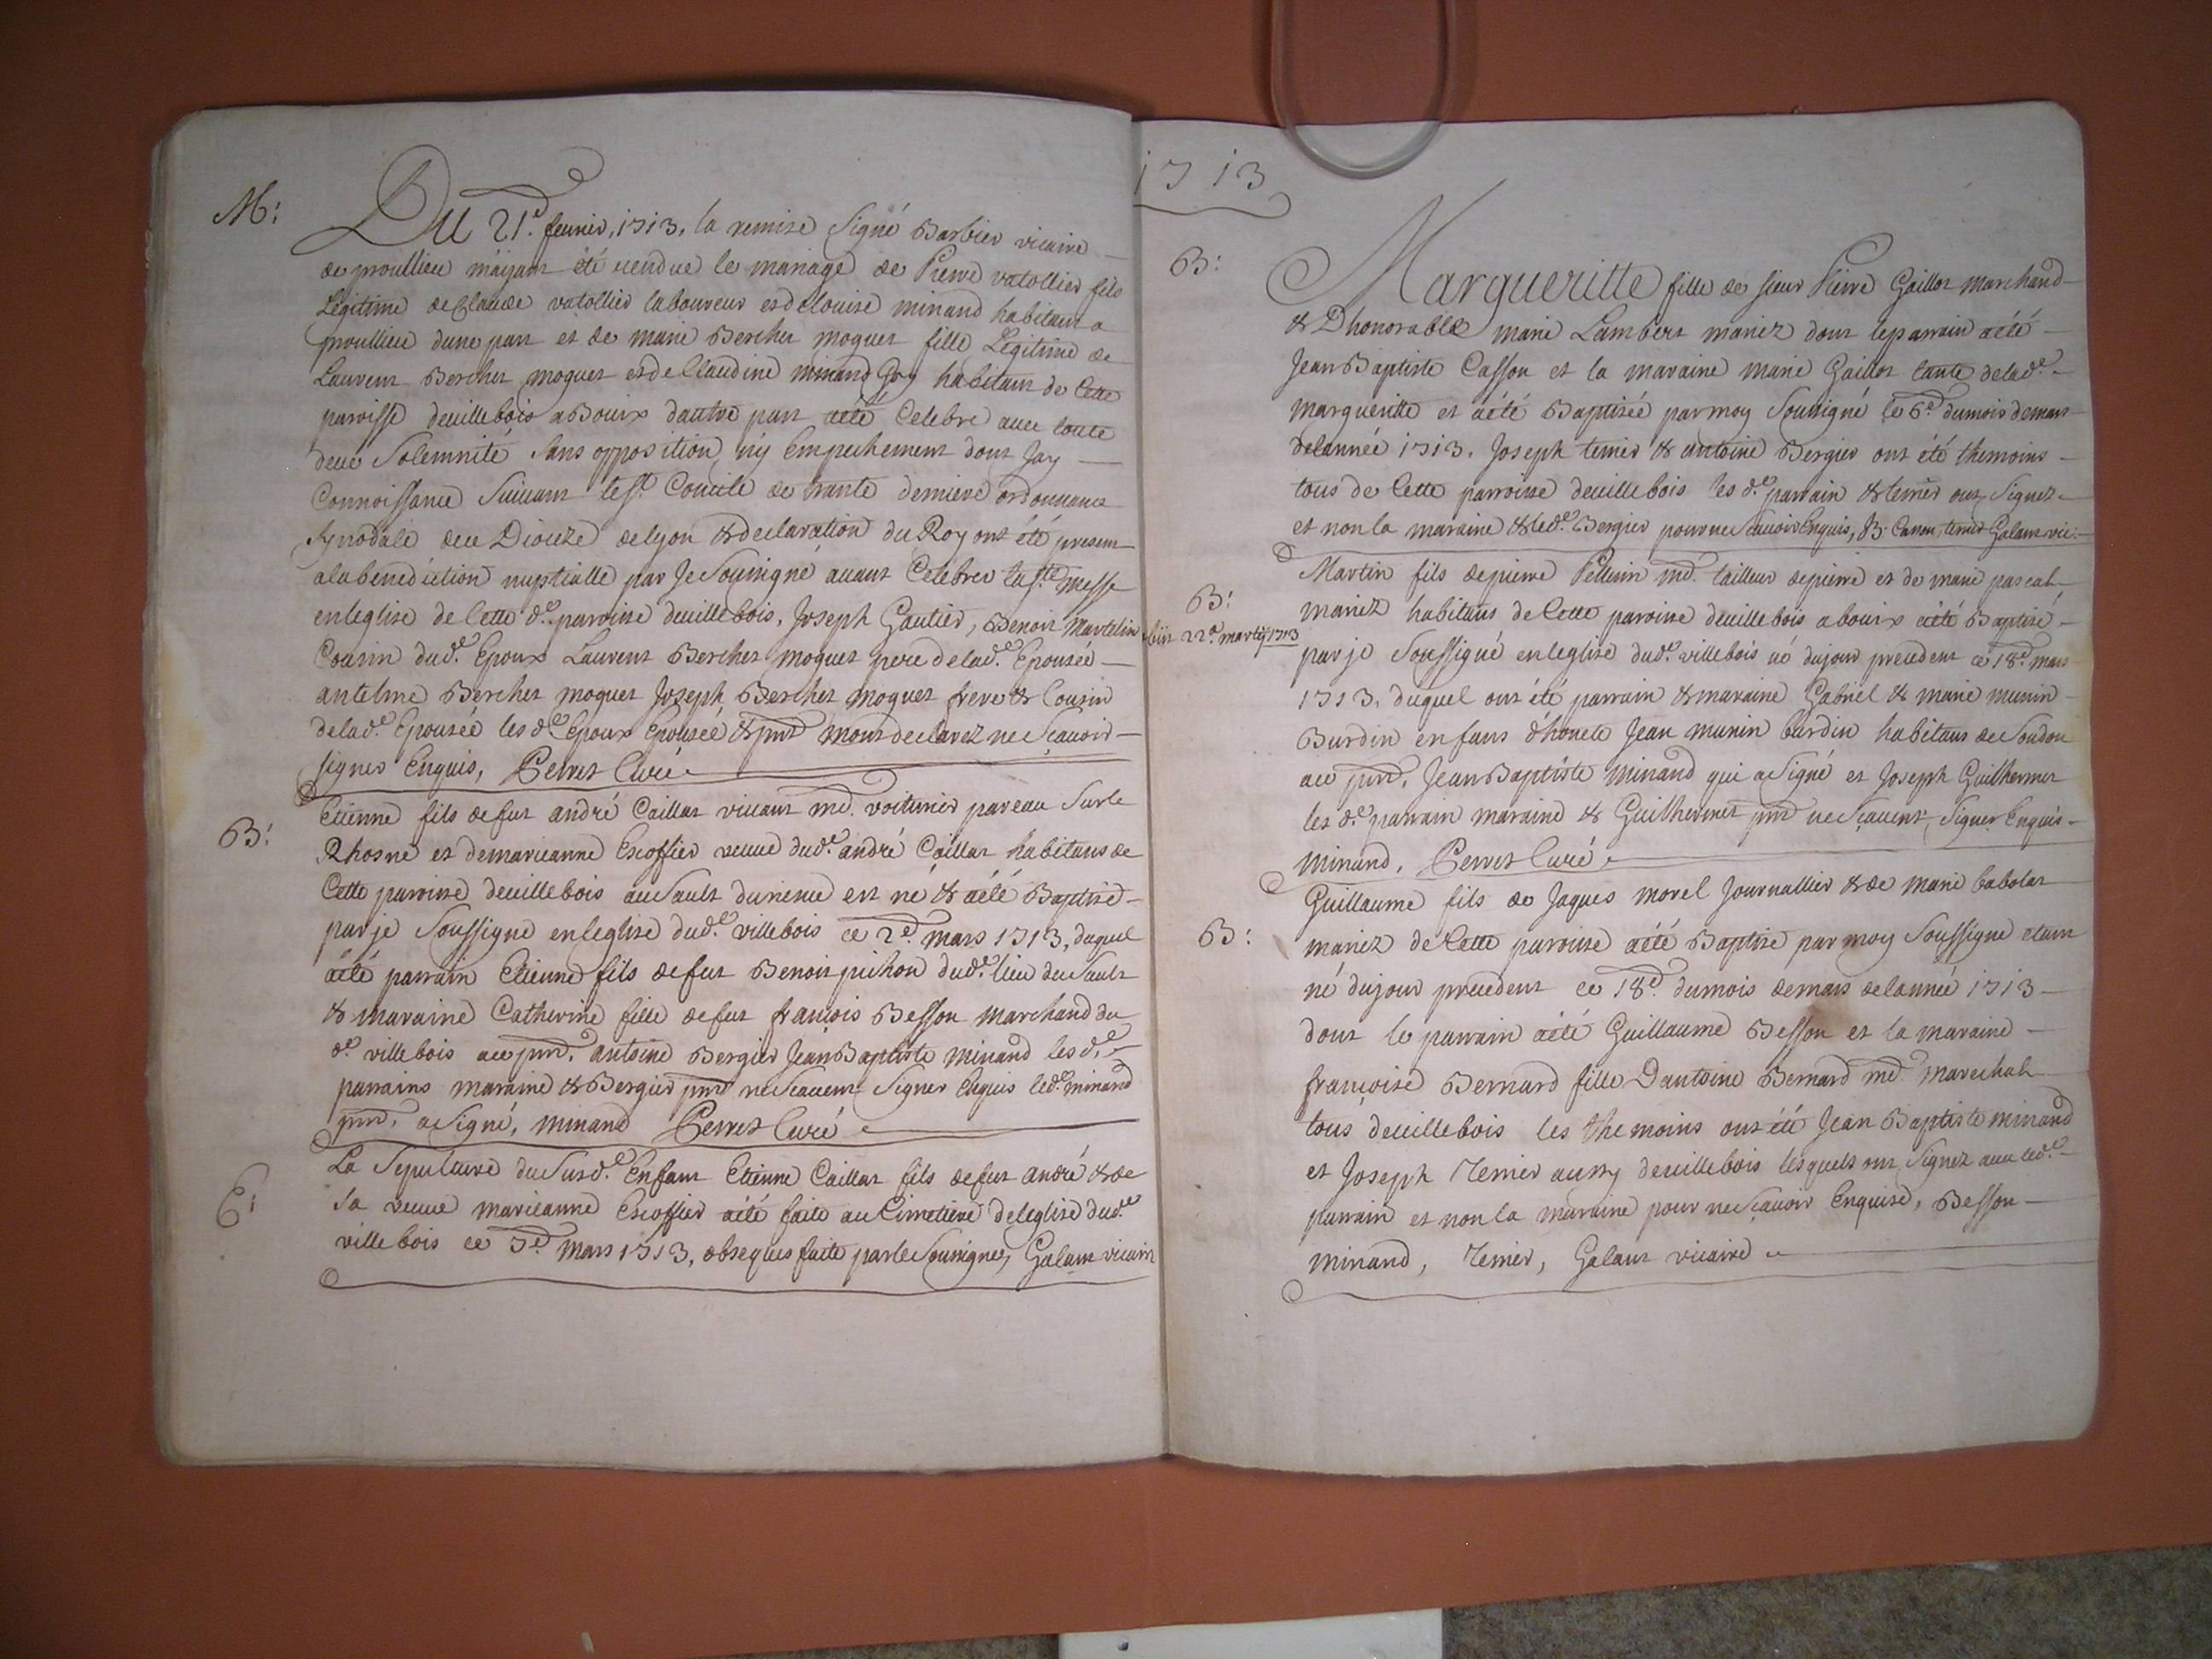 M:
Du 21.e feurier, 1713, la remise Signé Barbier vicaire
de proullieu m'ayant été rendue le mariage de Pierre vatollier fils
Légitime de Claude vatollier laboureur et de louise minand habitant a
proullieu dune part et de marie Bercher moquet fille Légitime de
Laurent Bercher moquet et de Claudine minand Goy habitant de Cette
paroisse deuillebois a Bouix dautre part aété Celebré auec toute
deue Solemnité Sans opposition, ny Empechement dont Jay
Connoissance Suiuant le St. Concile de trante derniere ordonnance
Synodale de ce Dioceze de lyon & declaration du Roy ont été present
ala benediction nuptialle par Je Sousigné auant Celebrer la Ste. Messe
en leglise de Cette d.e paroisse deuillebois, Joseph Gautier, Benoit Martelin
Cousin dud.t Epoux Laurent Bercher moquet pere de lad.e Epousée
antelme Bercher moquet Joseph Bercher moquet frere & Cousin
de lad.e Epousée les d.e Epoux Epousée & pnt mont declarez ne Scauoir
signer Enquis, Perret Curé
B:
Etienne fils de fut andré Caillat viuant md. voiturier par eau Sur le
Rhosne et de marieanne Escoffier veuue dud.t andré Caillat habitans de
Cette paroisse deuillebois au Sault dunieue est né & aété Baptisé
par je Soussigne en leglise dud.t villebois ce 2.e mars 1713, duquel
aété parrain Etienne fils de fut Benoit pichon dud.t lieu du Sault
& maraine Catherine fille de fut françois Besson marchand du
d.t villebois au pnt. antoine Bergier Jean Baptiste minand les d.e
parrains maraine & Bergier pnt ne Scauent Signer Enquis led.t minand
pnt. a Signé, minand Perret Curé
E:
La Sepulture du Susd.t Enfant Etienne Caillat fils de fut andré & de
Sa veuue marieanne Escoffier aété faite au Cimetiere de leglise dud.t
villebois ce 7.e mars 1713, obseques faite par le Sousigner, Galant vicaire
1713
B:
Margueritte fille de sieur Pierre Gaillot marchand
& Dhonorable marie Lambert mariez dont le parrain aété
Jean Baptiste Casson et la maraine marie Gaillot tante de lad.e
margueritte et aété Baptisée par moy Sousigné le 6.e du mois de mars
de lannée 1713. Joseph ternier & antoine Bergier ont été themoins
tous de Cette parroisse deuillebois les d.e parrain & ternier ont Signez
et non la maraine & led.t Bergier pour ne Scauoir Enquis, B: Casson, ternier Galant vic:
B:
obiit 22.a martij 1713
Martin fils de pierre Pellerin md. tailleur de pierre et de marie pascal
mariez habitans de Cette paroisse deuillebois a bouix aété Baptisé
par je Soussigné en leglise dud.t villebois né du jour precedent ce 18.e mars
1713, duquel ont été parrain & maraine Gabriel & marie munin
Burdin enfans d'honete Jean munin burdin habitans de Soudon
au pnt. Jean Baptiste Minand qui a Signé et Joseph Guilhermet
les d.e parrain maraine & Guilhermet pnt ne Scauent, Signer Enquis
Minand, Perret Curé
B:
Guillaume fils de Jaques morel Journallier & de marie babolat
mariez de Cette paroisse aété Baptisé par moy Soussigne etant
né du jour precedent ce 18.e du mois de mars de lannée 1713
dont le parrain aété Guillaume Besson et la maraine
françoise Bernard fille Dantoine Bernard md. marechal
tous deuillebois les themoins ont été Jean Baptiste minand
et Joseph Ternier aussy deuillebois lesquels ont Signez auec led.t
parrain et non la maraine pour ne Scauoir Enquise, Besson
minand, Ternier, Galant vicaire